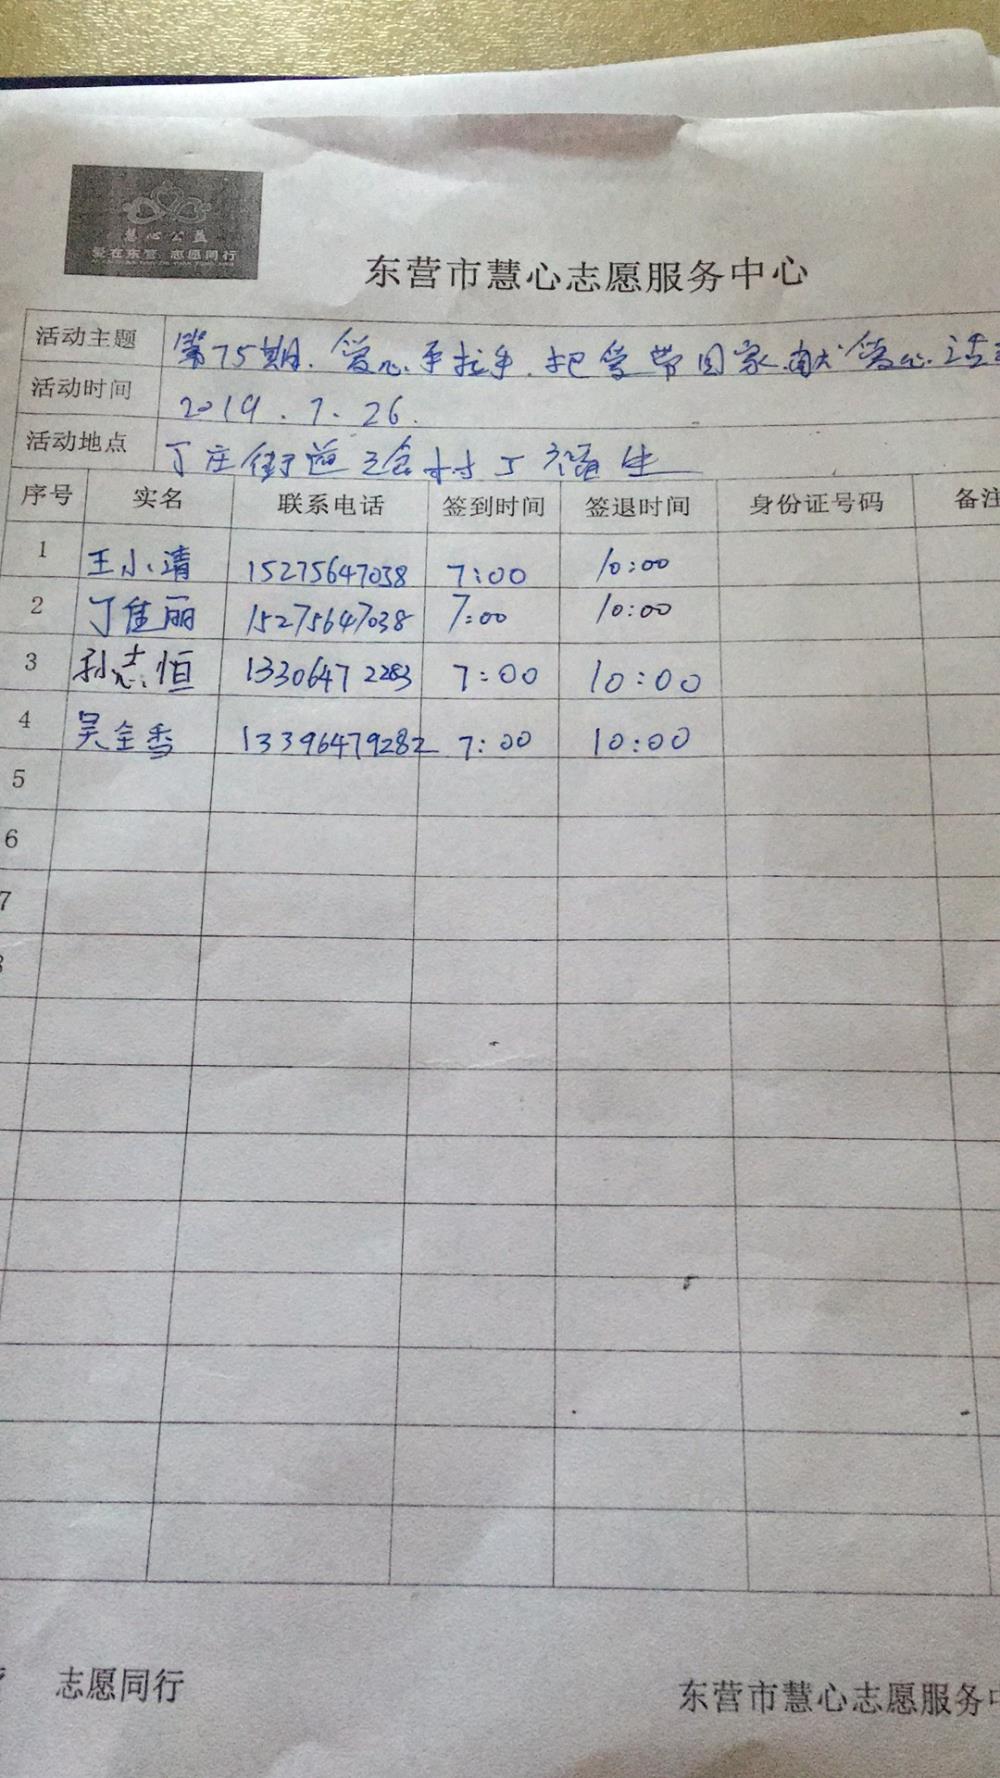 慧心公益
爱在东营 志愿同行
东营市慧心志愿服务中心
活动主题 第75期.爱心手拉手.把爱带回家.献爱心活
活动时间 2019.7.26.
活动地点 丁庄街道 村丁福生
序号 实名 联系电话 签到时间 签退时间 身份证号码 备注
1 王小清 15275647038 7:00 10:00
2 丁佳丽 15275647038 7:00 10:00
3 孙志恒 13306472283 7:00 10:00
4 吴全香 13396479282 7:00 10:00
5
6
7
志愿同行 东营市慧心志愿服务中